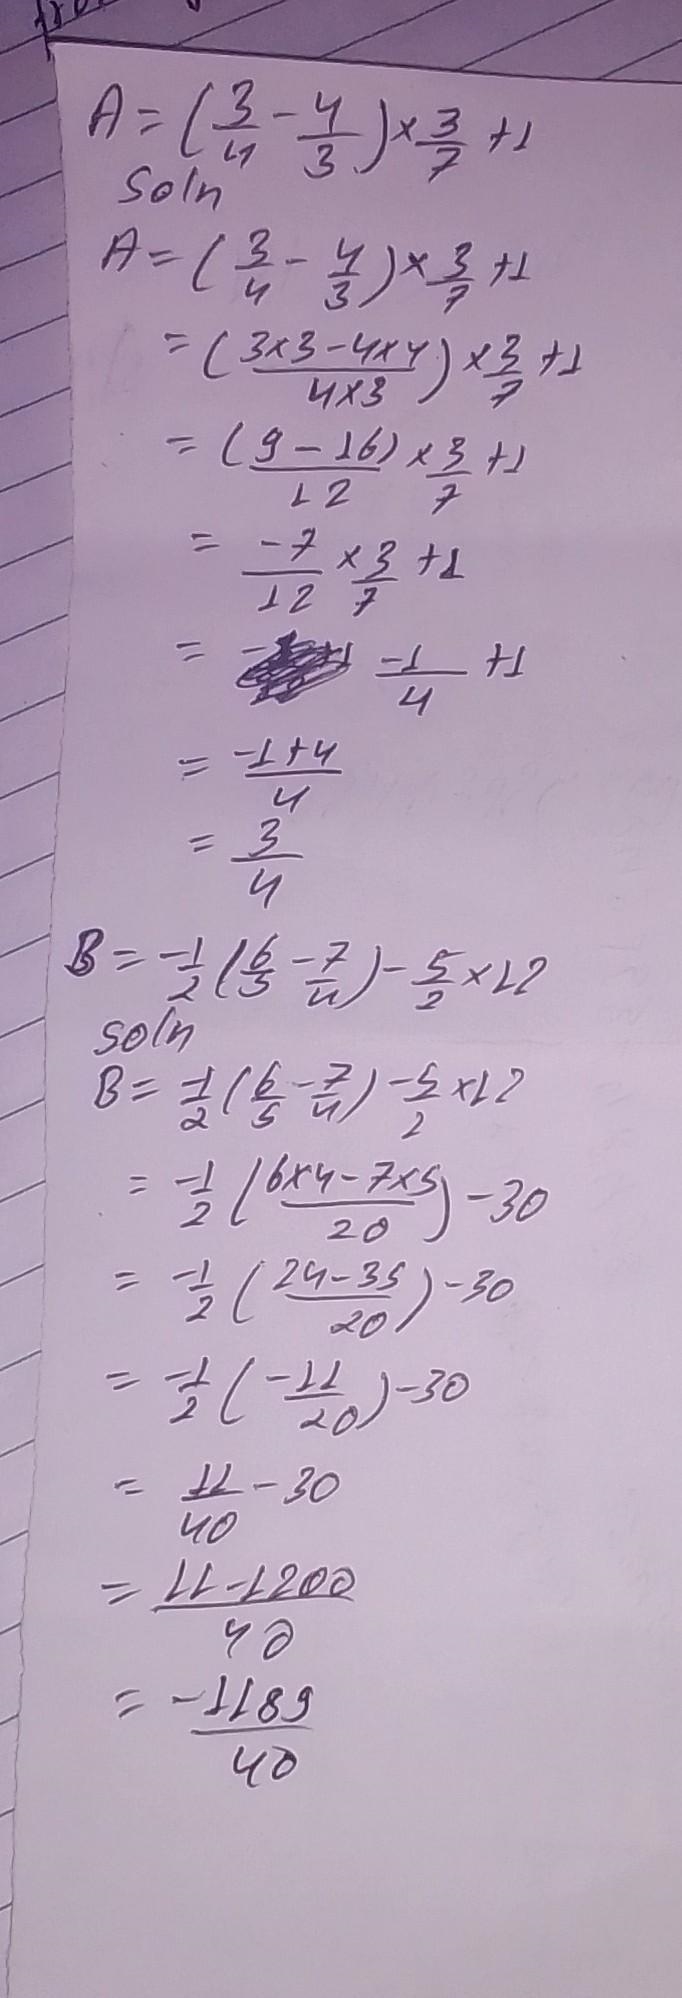 A = (3/4 - 4/3) × 3/7 + 1
Soln
A = (3/4 - 4/3) × 3/7 + 1
= (3×3-4×4 / 4×3) × 3/7 + 1
= (9-16) / 12 × 3/7 + 1
= -7/12 × 3/7 + 1
= -1/4 + 1
= -1+4 / 4
= 3/4
B = -1/2 (6/5 - 7/4) - 5/2 × 12
Soln
B = -1/2 (6/5 - 7/4) - 5/2 × 12
= -1/2 (6×4-7×5 / 20) - 30
= -1/2 (24-35 / 20) - 30
= -1/2 (-11/20) - 30
= 11/40 - 30
= 11-1200 / 40
= -1189/40